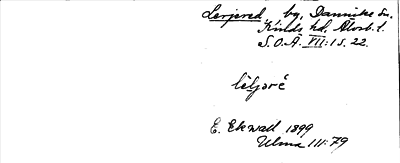 Lerjered, by, Dannike sn.
Kinds hd. Älvsb. l.
S.O.Ä. VII:1 s. 22.
lèljaré
E. Ekwall 1899
Ulma 111:79